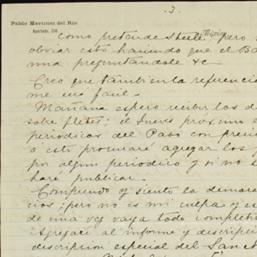 3.
Pablo Martinez del Rio
Como pretende Steele, pero
obviar esto haciendo que el Ba
una preguntandole &c
Creo que tambien la referencia
me era facil.
Mañana espero recibir los d
sobre fletes; el Jueves proximo e
periodicos del Paso con preci
a esto procuraré agregar los
por algun periodico y si no e
haré publicar.
Comprendo y siento la demora
cios; pero no es mi culpa y c
de una vez vaya todo completo
Agregaré al informe y descripci
descripcion especial del San